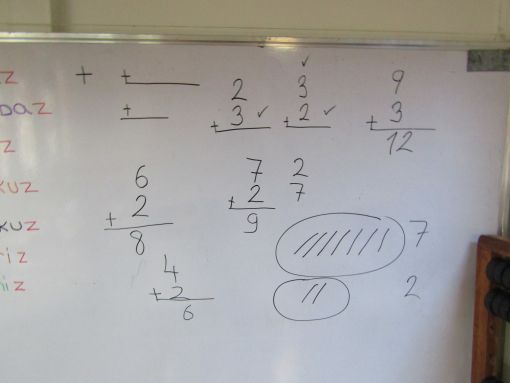 Z
+ + 2 3 9
DAZ
+ 3 + 2 + 3
12
Z
KUZ
6 7 2
+ 2 + 2 7
8 9
7
KUZ
RİZ
4
+ 2
6
2
NİZ